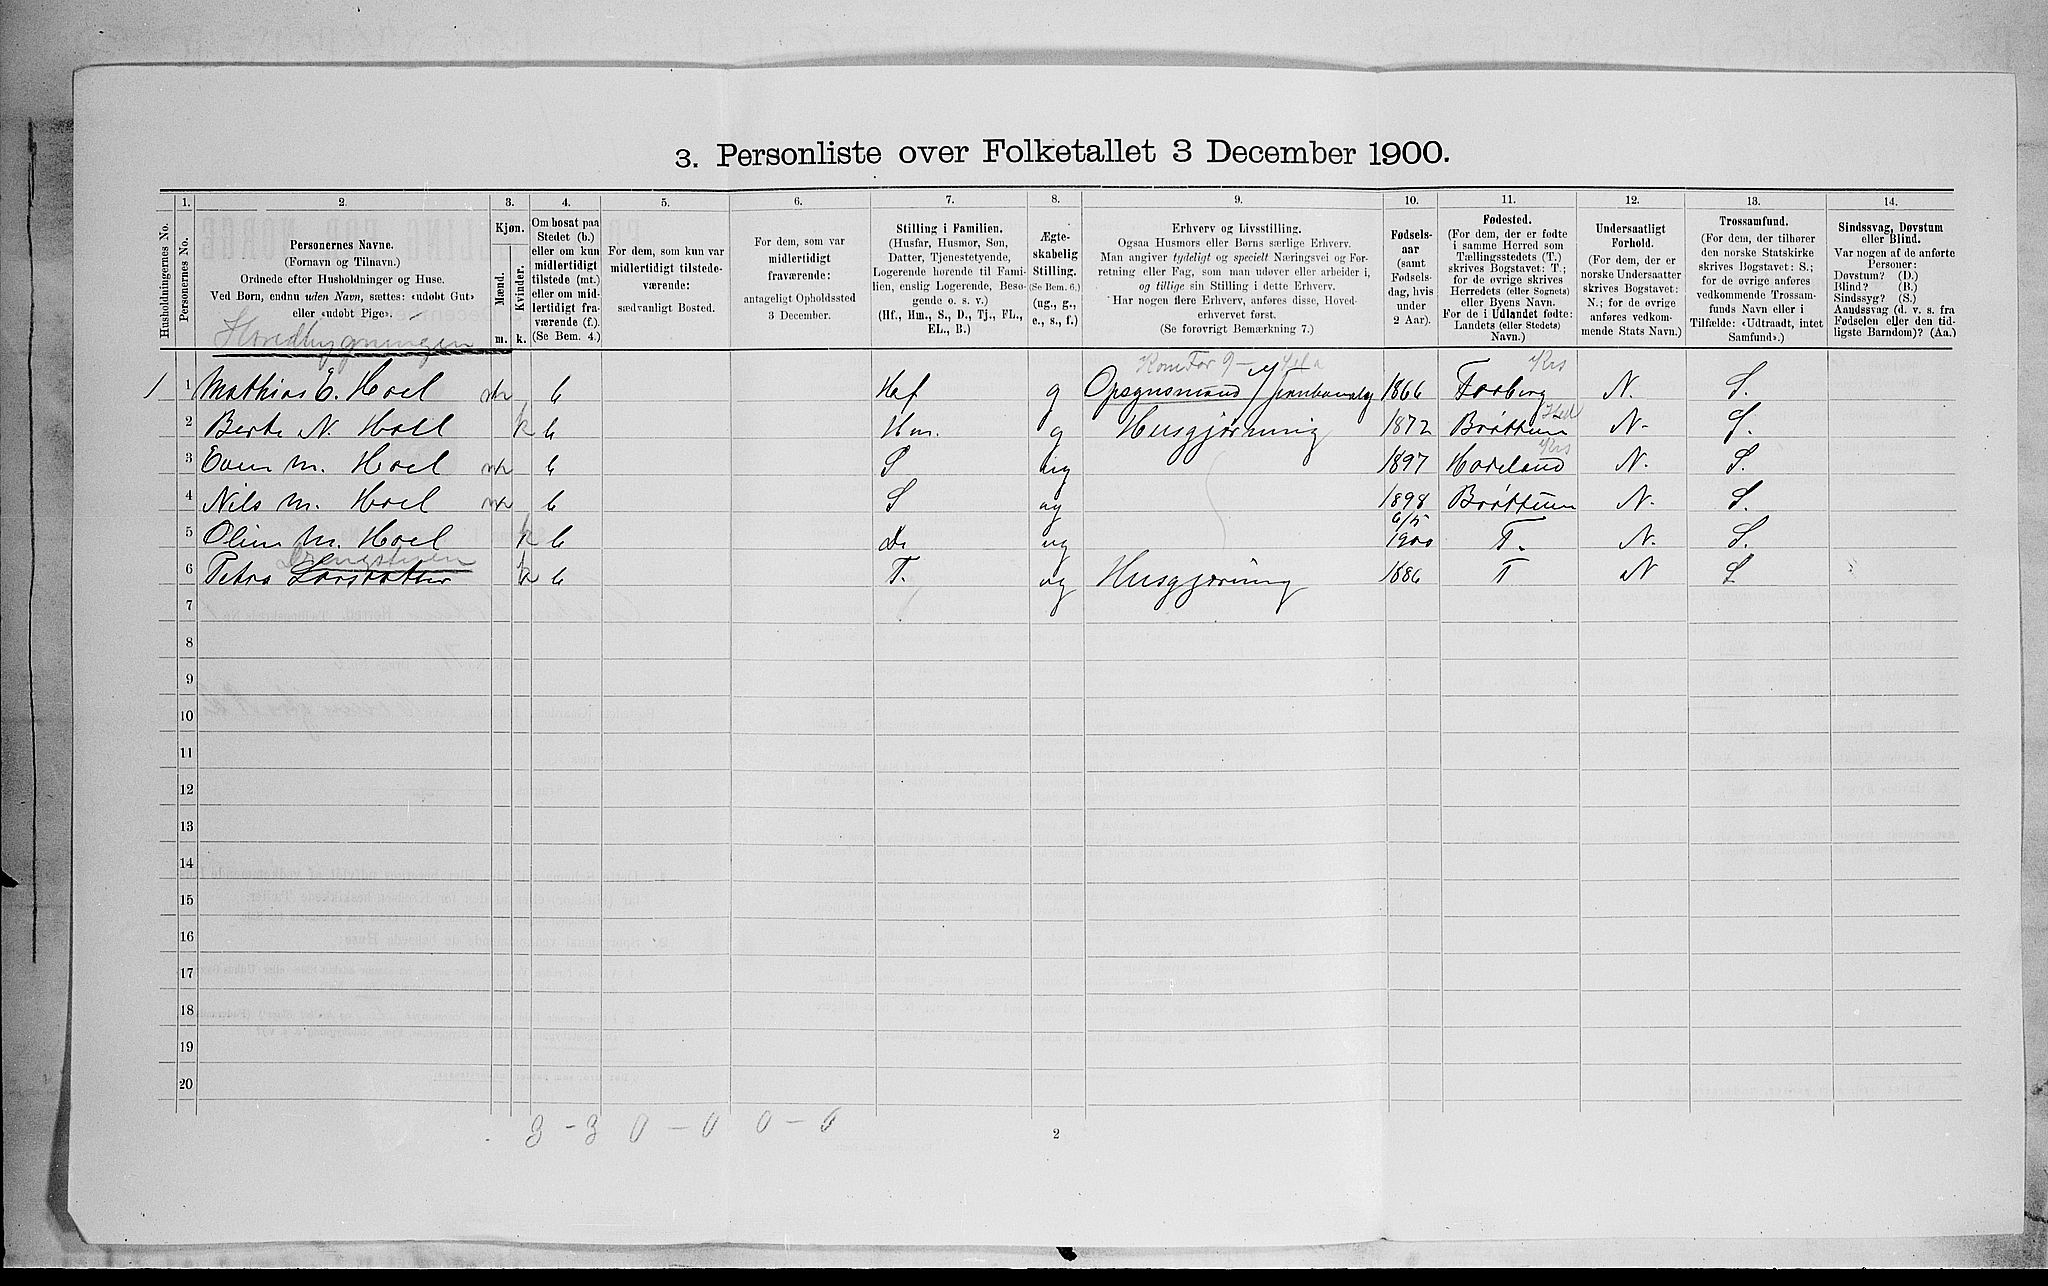 3. Personliste over Folketallet 3 December 1900.
Husholdningernes No.
1.
Personernes No.
2.
Personernes Navne.
(Fornavn og Tilnavn.)
Ordnede efter Husholdninger og Huse.
Ved Børn, endnu uden Navn, sættes: «udøbt Gut»
eller «udøbt Pige».
Hovedbygningen
3.
Kjøn.
Mænd.
Kvinder.
m. k.
4.
Om bosat paa
Stedet (b.)
eller om kun
midlertidigt
tilstede (mt.)
eller om mid-
lertidigt fra-
værende (f.).
(Se Bem. 4.)
5.
For dem, som kun var
midlertidigt tilstede-
værende:
sædvanligt Bosted.
6.
For dem, som var
midlertidigt
fraværende:
antageligt Opholdssted
3 December.
7.
Stilling i Familien.
(Husfar, Husmor, Søn,
Datter, Tjenestetyende,
Logerende hørende til Fami-
lien, enslig Logerende, Besø-
gende o. s. v.)
(Hf., Hm., S., D., Tj., FL.,
EL., B.)
8.
Ægte-
skabelig
Stilling.
(Se Bem. 6.)
(ug., g.,
e., s., f.)
9.
Erhverv og Livsstilling.
Ogsaa Husmors eller Børns særlige Erhverv.
Man angiver tydeligt og specielt Næringsvei og For-
retning eller Fag, som man udøver eller arbeider i,
og tillige sin Stilling i dette Erhverv.
Har nogen flere Erhverv, anføres disse, Hoved-
erhvervet først.
(Se forøvrigt Bemærkning 7.)
10.
Fødsels-
aar
(samt
Fødsels-
dag, hvis
under
2 Aar).
11.
Fødested.
(For dem, der er fødte
i samme Herred som
Tællingsstedets (T.)
skrives Bogstavet: T.;
for de øvrige skrives
Herredets (eller Sognets)
eller Byens Navn.
For de i Udlandet fødte:
Landets (eller Stedets)
Navn.)
12.
Undersaatligt
Forhold.
(For dem, der er
norske Undersaatter
skrives Bogstavet:
N.; for de øvrige
anføres vedkom-
mende Stats Navn.)
13.
Trossamfund.
(For dem, der tilhører
den norske Statskirke
skrives Bogstavet: S.;
for de øvrige anføres
vedkommende Trossam-
funds Navn eller i
Tilfælde: «Udtraadt, intet
Samfund».)
14.
Sindssvag, Døvstum
eller Blind.
Var nogen af de anførte
Personer:
Døvstum? (D.)
Blind? (B.)
Sindssyg? (S.)
Aandssvag (d. v. s. fra
Fødselen eller den tid-
ligste Barndom)? (Aa.)
1 1 Mathias E. Hoel m b Haf g Opsynsmand 1866 Faaberg N. S.
2 Berte N. Hoel k b Hm. g Husgjørning 1872 Brøttum Hed N. S.
3 Even M. Hoel m b S ug 1897 N. S.
4 Nils M. Hoel m b S ug 1898 Brøttum N. S.
5 Olin M. Hoel k b D. ug 6/5 1900 T. N. S.
6 Petra Larsdatter k b T. ug Husgjørning 1886 T N S
7
8
9
10
11
12
13
14
15
16
17
18
19
20
3 - 3 0 - 0 0 - 0
2